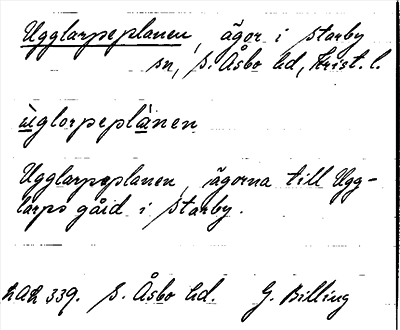 Ugglarpeplanen, ägor i Starby
sn, S. Åsbo hd, Krist. l.
ùglorpeplànen
Ugglarpeplanen, ägorna till Ugg-
larps gård i Starby.
LAL 339. S. Åsbo hd. G. Billing